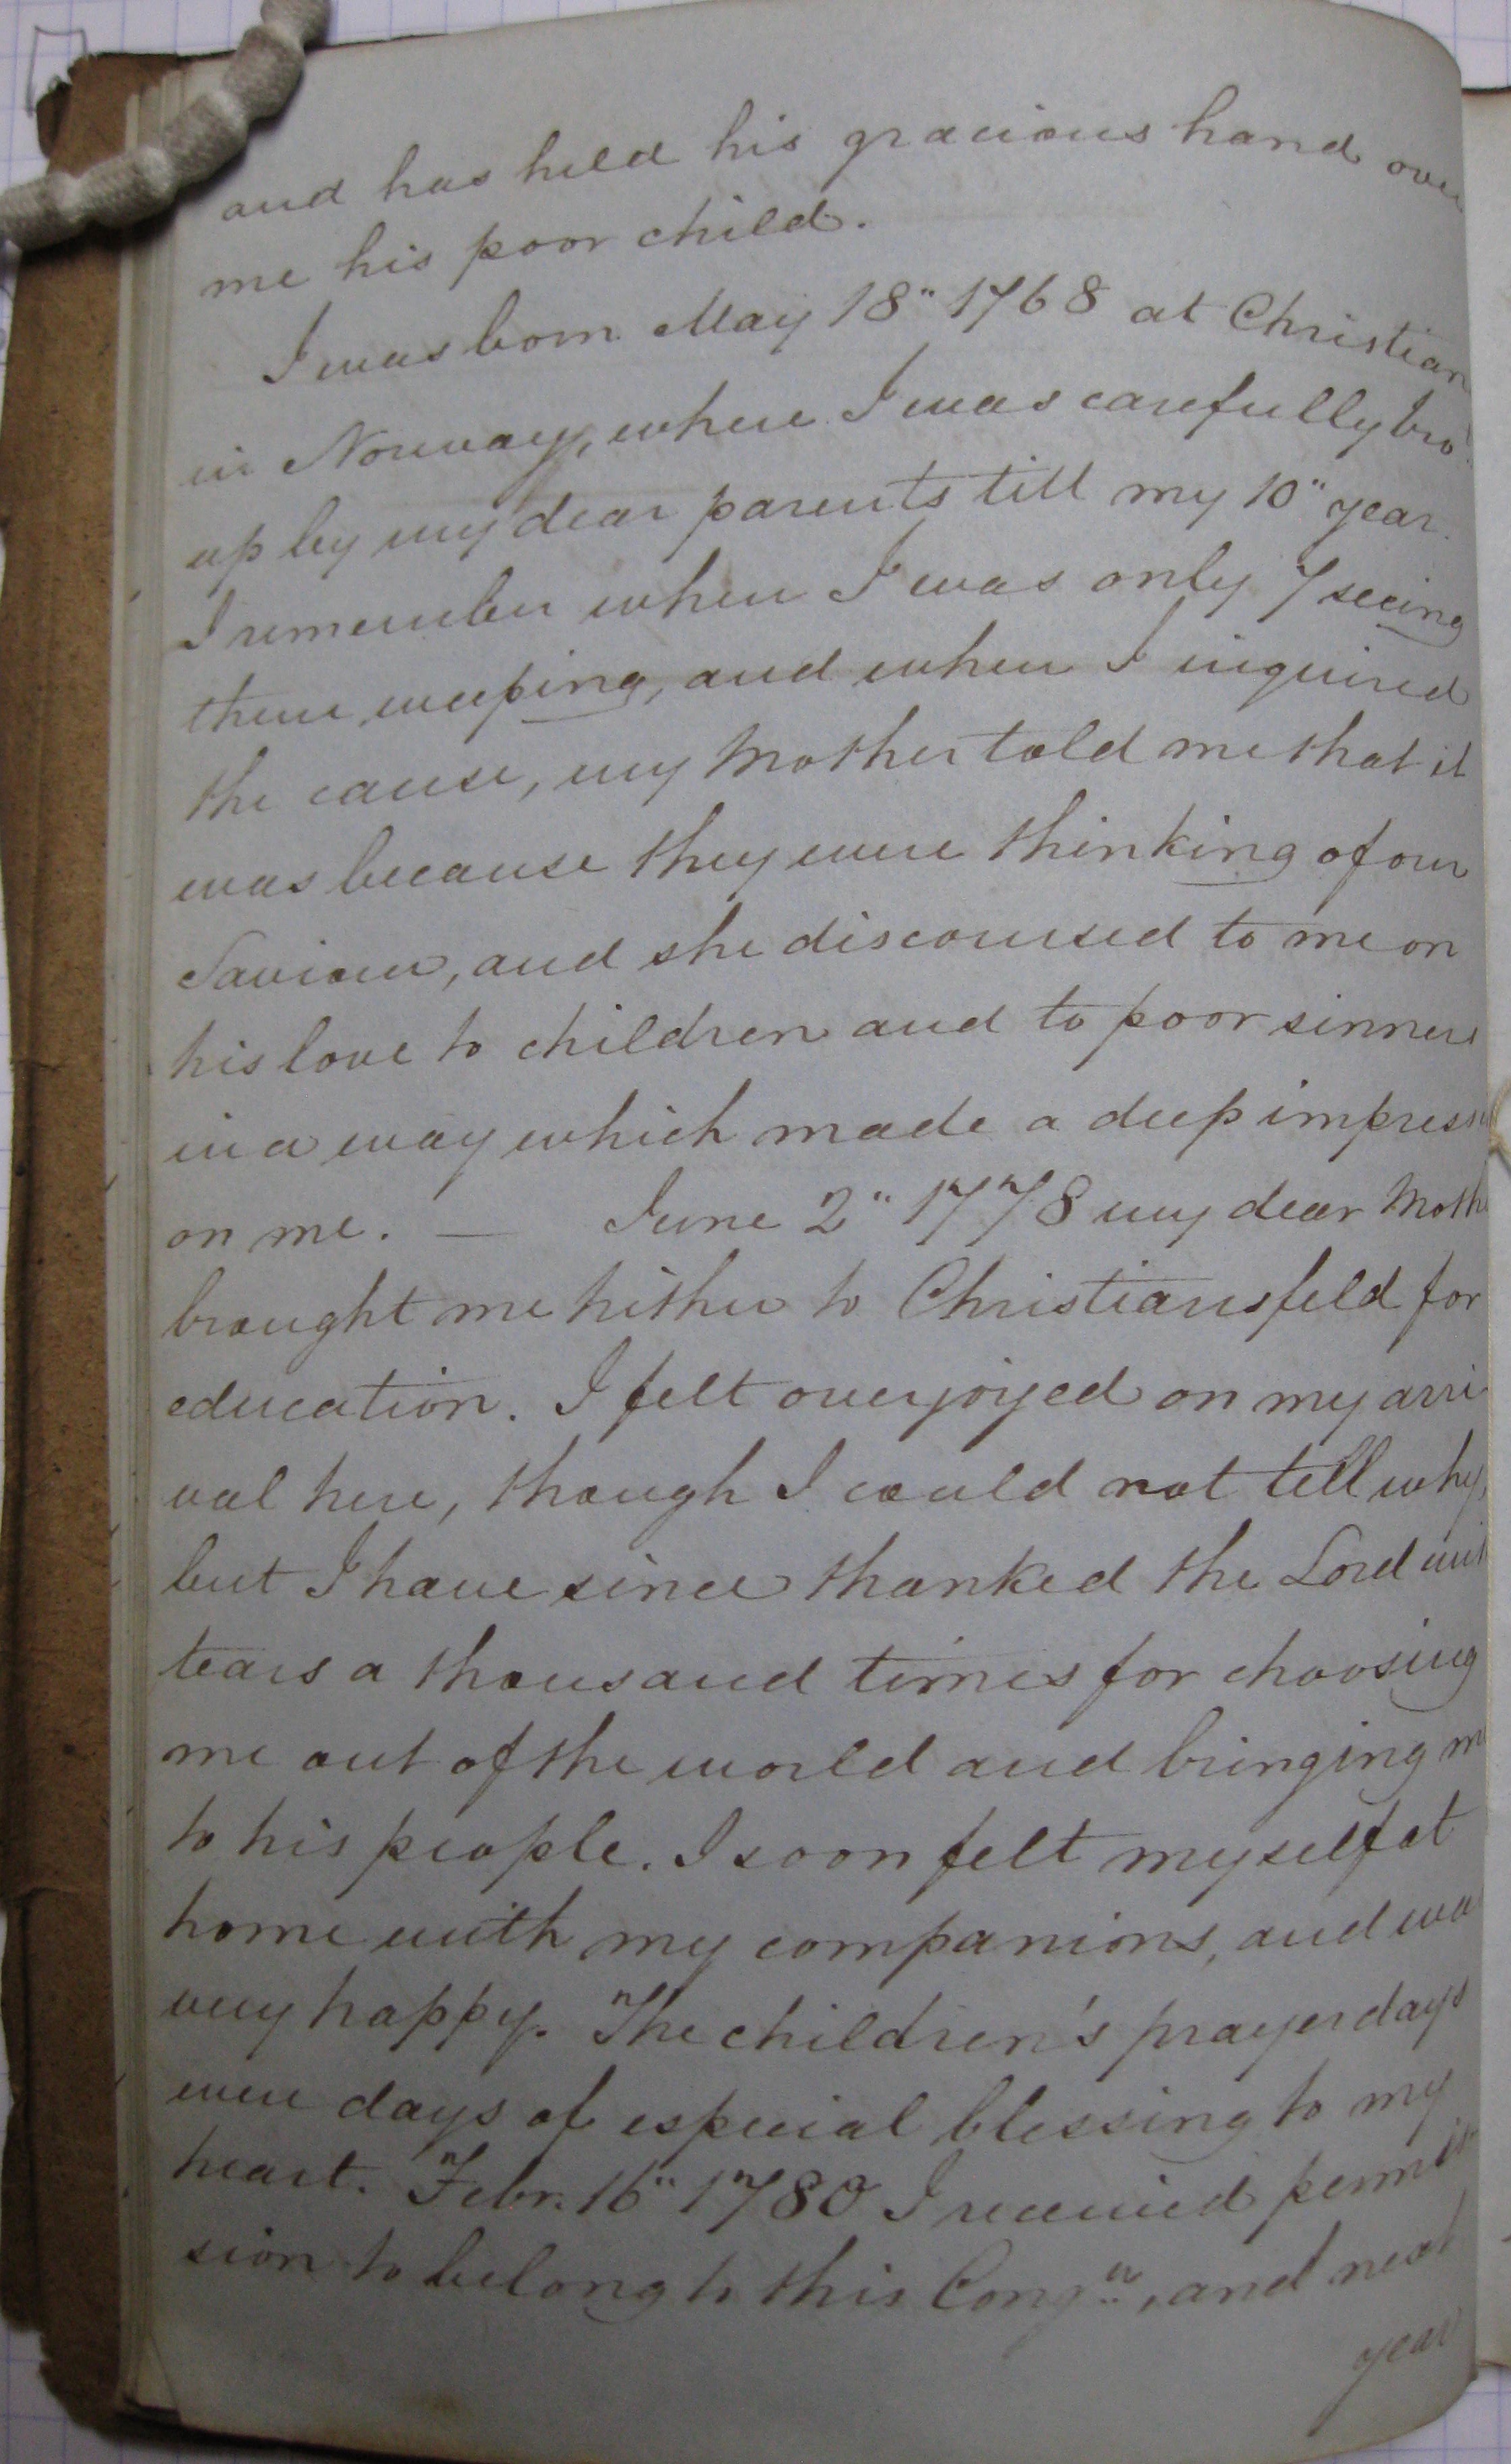 and has held his gracious hand over
me his poor child.
I was born May 18" 1768 at Christian
in Norway, where I was carefully bro
up by my dear parents till my 10" year.
I remember when I was only 7 seeing
them weeping, and when I inquired
the cause, my Mother told me that it
was because they were thinking of our
Saviour, and she discoursed to me on
his love to children and to poor sinners
in a way which made a deep impress
on me. — June 2" 1778 my dear Moth
brought me hither to Christiansfeld for
education. I felt overjoyed on my arri
val here, though I could not tell why,
but I have since thanked the Lord with
tears a thousand times for choosing
me out of the world and bringing me
to his people. I soon felt myself at
home with my companions, and was
very happy. The children's prayer days
were days of especial blessing to my
heart. Febr. 16" 1780 I received permis
sion to belong to this Congn, and next
year